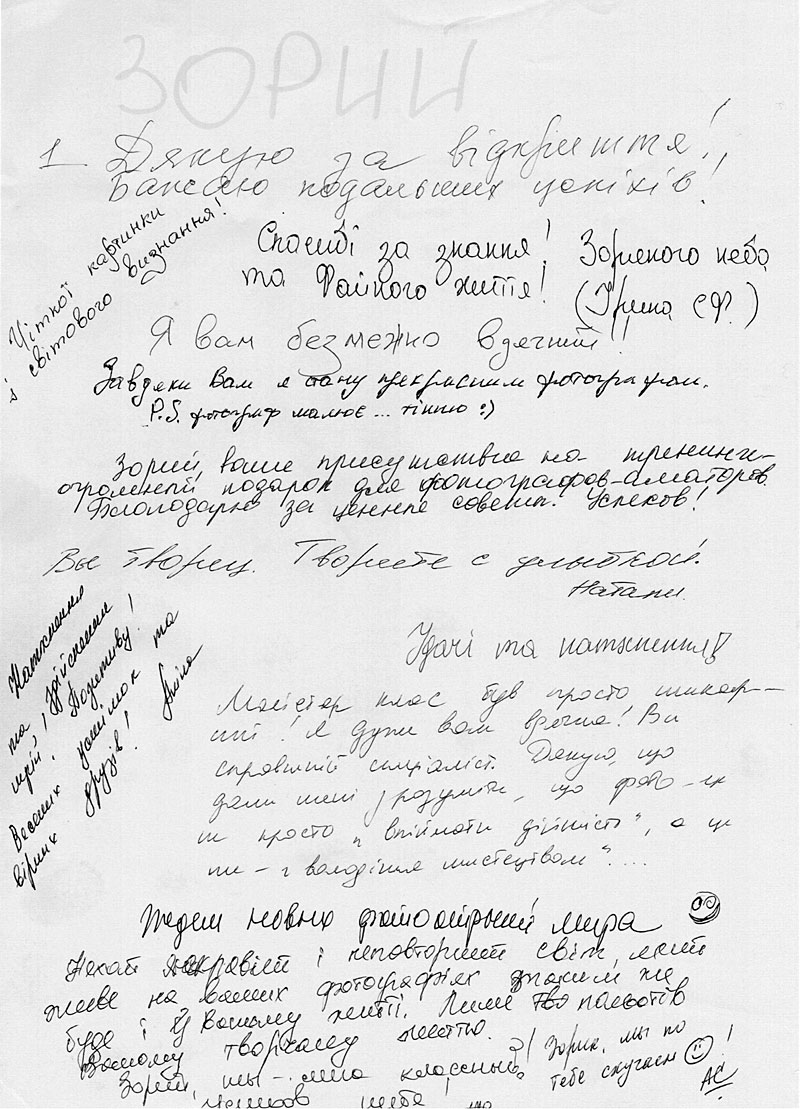 ЗОРИЙ
1. Дякую за відкриття!
Бажаю подальших успіхів!
Чіткої картинки
і світового визнання!
Спасибі за знання! Зоряного неба
та Файного життя! (Ірина (Ф.)
Я вам безмежно вдячний!!
Завдяки Вам я стану прекрасним фотографом.
P.S. фотограф малює... тінню :)
Зорий, ваше присутствие на тренинге-
огромный подарок для фотографов-аматоров.
Благодарю за ценные советы. Успехов!
Вы творец. Творите с улыбкой!
Натали.
Натхнення
та здійснення
мрій! Позитиву!
Веселих усмішок та
вірних друзів!
Удачі та натхнення!
Майстер клас був просто шикар-
ний! Я дуже вам вдячна! Ви
справжній спеціаліст. Дякую, що
дали мені зрозуміти, що фото - це
не просто „впіймати дійність", а це
ще - і володіння мистецтвом"....
Ждем новых фотоотрытий мира
Нехай яскравість і неповторний світ, який
живе на ваших фотографіях
буде і у Вашому житті. Лише
Вашому творчому
Зорий, ты - классный!
Зорик, мы по
тебе скучаем !
АС